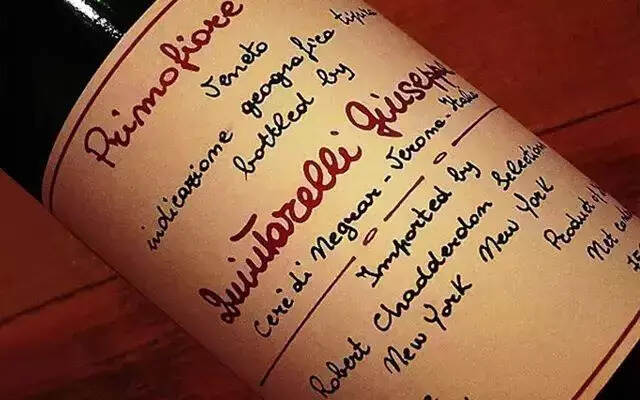 Primofiore
Veneto
indicazione geografica tipica
bottled by
Quintarelli Giuseppe
Cerè di Negrar - Verona - Italia
Imported by
Robert Chadderdon Selections
New York New York
Product of
Net